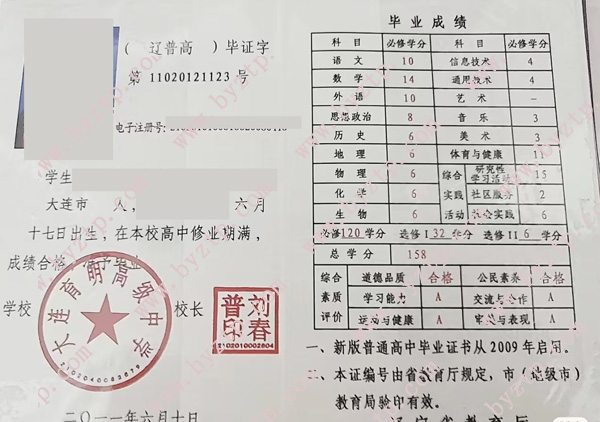 （辽普高）毕证字
第 11020121123 号
电子注册号：
学生
大连市 人， 六月
十七日出生，在本校高中修业期满，
成绩合格，准予毕业
学校 校长
大连育明高级中学
2102040083679
刘春普印
2102010002604
二〇一一年六月十日
毕业成绩
科目 必修学分 科目 必修学分
语文 10 信息技术 4
数学 14 通用技术 4
外语 10 艺术 —
思想政治 8 音乐 3
历史 6 美术 3
地理 6 体育与健康 11
物理 6 综合 研究性学习活动 15
化学 6 实践 社区服务 2
生物 6 活动 社会实践 6
必修120学分 选修I 32学分 选修II 6 学分
总学分 158
综合 道德品质 合格 公民素养 合格
素质 学习能力 A 交流与合作 A
评价 运动与健康 A 审美与表现 A
一、新版普通高中毕业证书从2009年启用。
二、本证编号由省教育厅规定，市（地级市）
教育局验印有效。
辽宁省教育厅
www.byztp.com